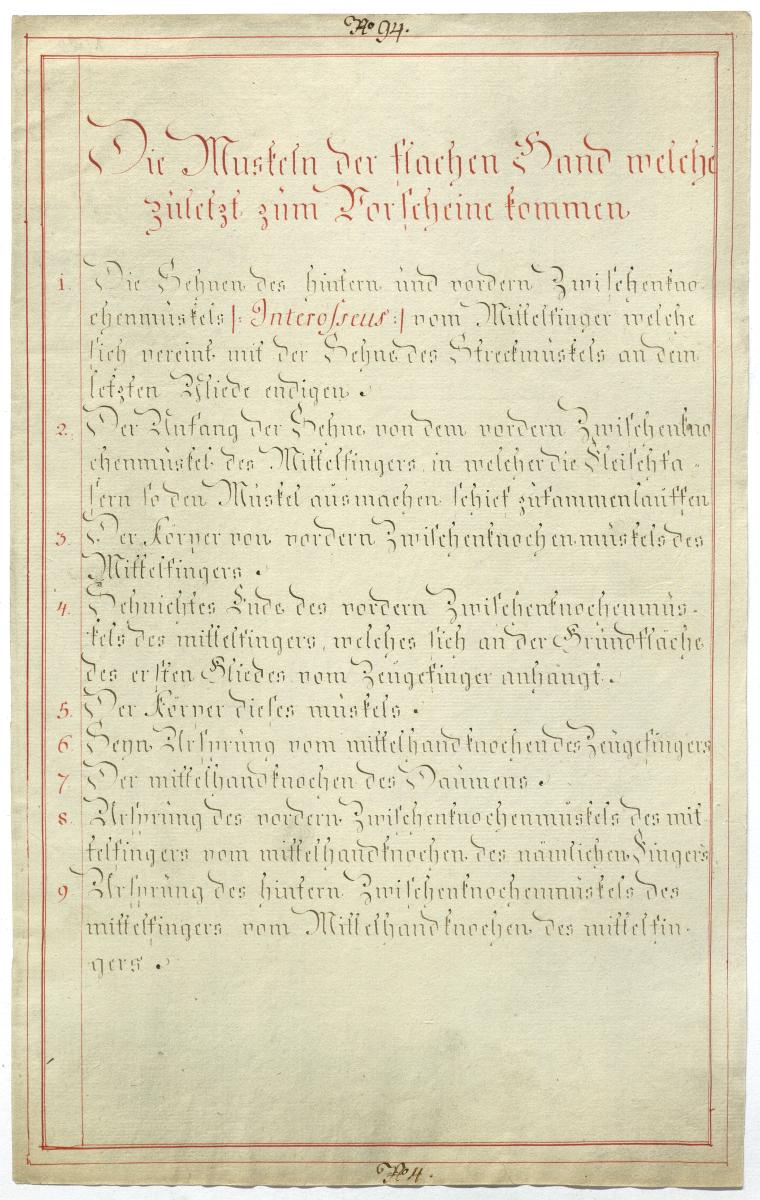 No 94.
Die Muskeln der flachen Hand welche
zuletzt zum Vorscheine kommen
1. Die Sehnen des hintern und vordern Zwischenkno-
chenmuskels |: Interosseus :| vom Mittelfinger welche
sich vereint mit der Sehne des Streckmuskels an dem
letzten Gliede endigen.
2. Der Anfang der Sehne von dem vordern Zwischenkno
chenmuskel des Mittelfingers, in welcher die Fleischfa-
sern so den Muskel ausmachen schief zusammenlauffen
3. Der Körper von vordern Zwischenknochenmuskels des
Mittelfingers.
4. Sehnichtes Ende des vordern Zwischenknochenmus-
kels des mittelfingers, welches sich an der Grundfläche
des ersten Gliedes vom Zeugefinger anhängt.
5. Der Körper dieses muskels.
6. Seyn Ursprung vom mittelhandknochen des Zeugefingers
7 Der mittelhandknochen des Daumens.
8. Ursprung des vordern Zwischenknochenmuskels des mit
telfingers vom mittelhandknochen des nämlichen Fingers
9 Ursprung des hintern Zwischenknochenmuskels des
mittelfingers vom Mittelhandknochen des mittelfin-
gers.
No 4.